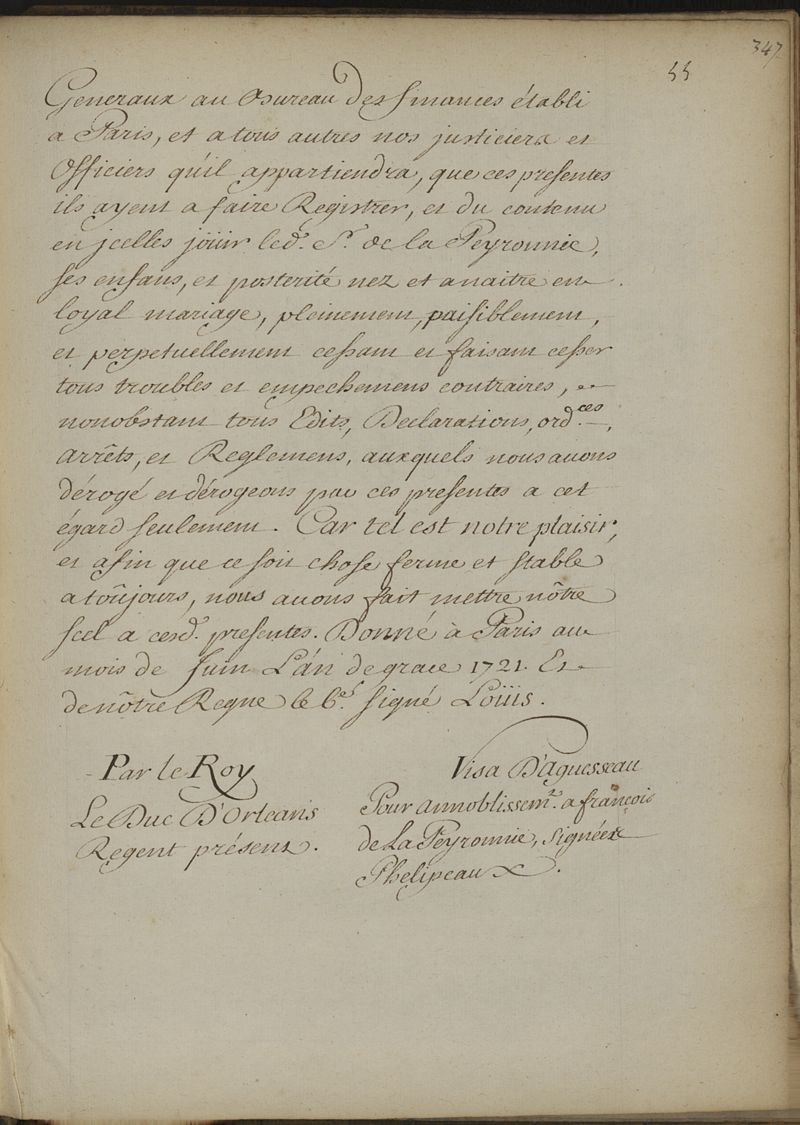 347
55
Generaux au Bureau des finances établi
a Paris, et a tous autres nos justiciers et
Officiers qu'il appartiendra, que ces presentes
ils ayent a faire Registrer, et du contenu
en jcelles joüir led. Sr. de la Peyronnie,
ses enfans, et posterité nez et a naitre en
loyal mariage, pleinement, paisiblement,
et perpetuellement cessant et faisant cesser
tous troubles et empechemens contraires,
nonobstant tous Edits, Declarations, ord.ces,
arrêts, et Reglemens, auxquels nous avons
dérogé et dérogeons par ces presentes a cet
égard seulement. Car tel est notre plaisir,
et afin que ce soit chose ferme et stable
a toûjours, nous avons fait mettre nôtre
scel a cesd. presentes. Donné à Paris au
mois de Juin L'án de grace 1721. Et
de nôtre Regne le 6.e signé Loüis.
Par le Roy
Le Duc D'Orleans
Regent présent.
Visa D'Aguesseau
Pour annoblissemt. a françois
de La Peyronnie, signées
Phelipeaux.